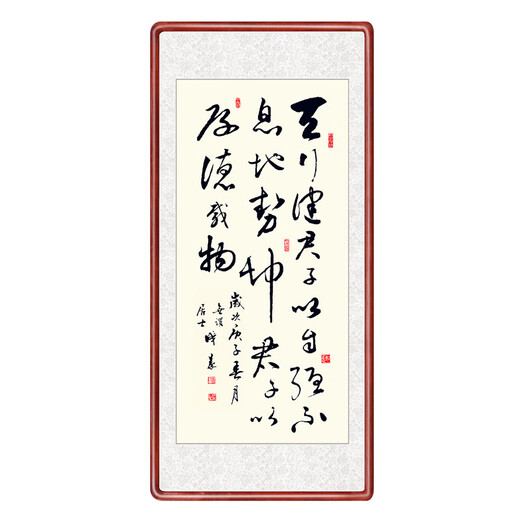 天行健君子以自强不
息地势坤君子以
厚德载物
岁次庚子春月
居士